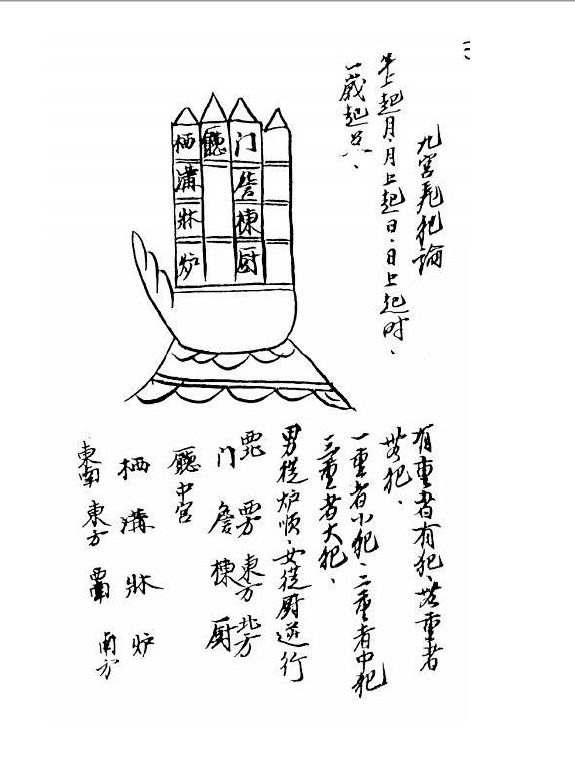 九宮犯論
年上起月、月上起日、日上起時、
一歲起
门
詹
棟
厨
廳
栖
溝
牀
炉
有重者有犯、無重者
無犯、
一重者小犯、二重者中犯
三重者大犯、
男從炉順、女從厨逆行
西北 西方 東方 北方
门 詹 棟 厨
廳中宮
栖 溝 牀 炉
東南 東方 西南 南方